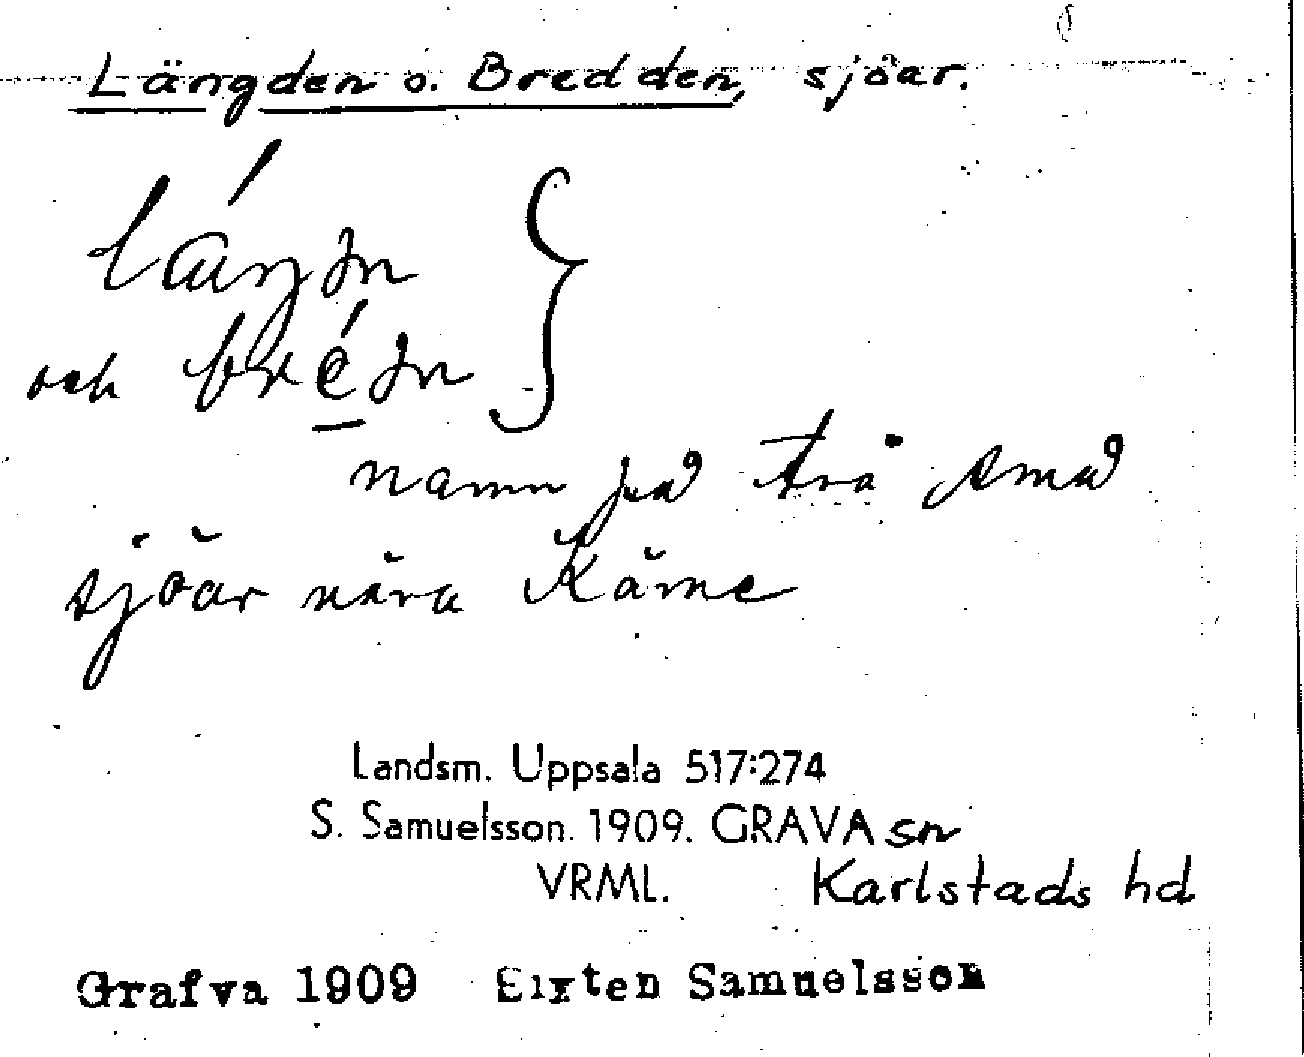 Längden o. Bredden, sjöar.
och
namn på två små
sjöar nära Kärne
Landsm. Uppsala 517:274
S. Samuelsson. 1909. GRAVA sn
VRML. Karlstads hd
Grafva 1909 Sixten Samuelsson